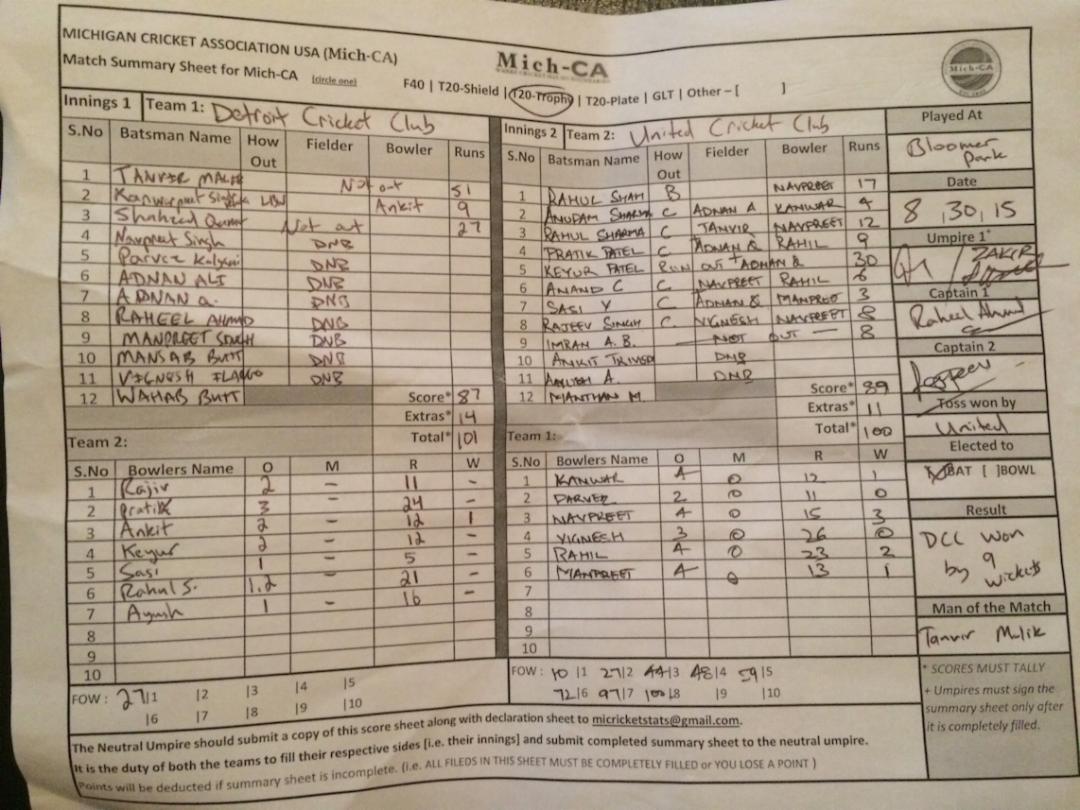 MICHIGAN CRICKET ASSOCIATION USA (Mich-CA)
Match Summary Sheet for Mich-CA (circle one) F40 | T20-Shield | T20-Trophy | T20-Plate | GLT | Other – [ ]
Mich-CA
Mich-CA
Innings 1 Team 1: Detroit Cricket Club
S.No Batsman Name How Out Fielder Bowler Runs
1 TANVIR MALIK Not out 51
2 Kanwarpreet Singh LBW Ankit 9
3 Shahzad Not out 27
4 Navpreet Singh DNB
5 Parvez DNB
6 ADNAN ALI DNB
7 ADNAN Q. DNB
8 RAHEEL AHMAD DNB
9 MANPREET SINGH DNB
10 MANSAB BUTT DNB
11 VIGNESH DNB
12 WAHAB BUTT
Score* 87
Extras* 14
Total* 101
Team 2:
S.No Bowlers Name O M R W
1 Rajiv 2 – 11 –
2 Pratik 3 – 24 –
3 Ankit 2 – 12 1
4 Keyur 2 – 12 –
5 Sasi 1 – 5 –
6 Rahul S. 1.2 – 21 –
7 Ayush 1 – 16 –
8
9
10
FOW : 27|1 |2 |3 |4 |5
|6 |7 |8 |9 |10
Innings 2 Team 2: United Cricket Club
S.No Batsman Name How Out Fielder Bowler Runs
1 RAHUL SHAH B NAVPREET 17
2 ANUPAM SHARMA C ADNAN A KANWAR 4
3 RAHUL SHARMA C TANVIR NAVPREET 12
4 PRATIK PATEL C ADNAN Q RAHIL 9
5 KEYUR PATEL RUN OUT + ADNAN Q 30
6 ANAND C C NAVPREET RAHIL 6
7 SASI Y C ADNAN Q MANPREET 3
8 RAJEEV SINGH C VIGNESH NAVPREET 8
9 IMRAN A. B. — NOT OUT — 8
10 ANKIT DNB
11 AAYUSH A. DNB
12 MANTHAN M.
Score* 89
Extras* 11
Total* 100
Team 1:
S.No Bowlers Name O M R W
1 KANWAR 4 0 12 1
2 PARVEZ 2 0 11 0
3 NAVPREET 4 0 15 3
4 VIGNESH 3 0 26 0
5 RAHIL 4 0 23 2
6 MANPREET 4 0 13 1
7
8
9
10
FOW : 10|1 27|2 44|3 48|4 59|5
72|6 97|7 100|8 |9 |10
Played At
Bloomer Park
Date
8, 30, 15
Umpire 1*
ZAKIR
Captain 1
Raheel Ahmad
Captain 2
Toss won by
United
Elected to
[X]BAT [ ]BOWL
Result
DCC Won
by 9
wickets
Man of the Match
Tanvir Malik
* SCORES MUST TALLY
+ Umpires must sign the
summary sheet only after
it is completely filled.
The Neutral Umpire should submit a copy of this score sheet along with declaration sheet to micricketstats@gmail.com.
It is the duty of both the teams to fill their respective sides [i.e. their innings] and submit completed summary sheet to the neutral umpire.
Points will be deducted if summary sheet is incomplete. (i.e. ALL FILEDS IN THIS SHEET MUST BE COMPLETELY FILLED or YOU LOSE A POINT )